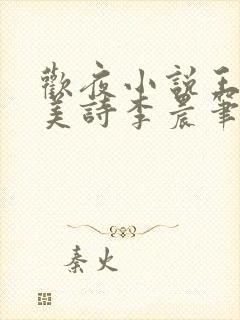 歡夜小說王
美詩李晨筆
秦火